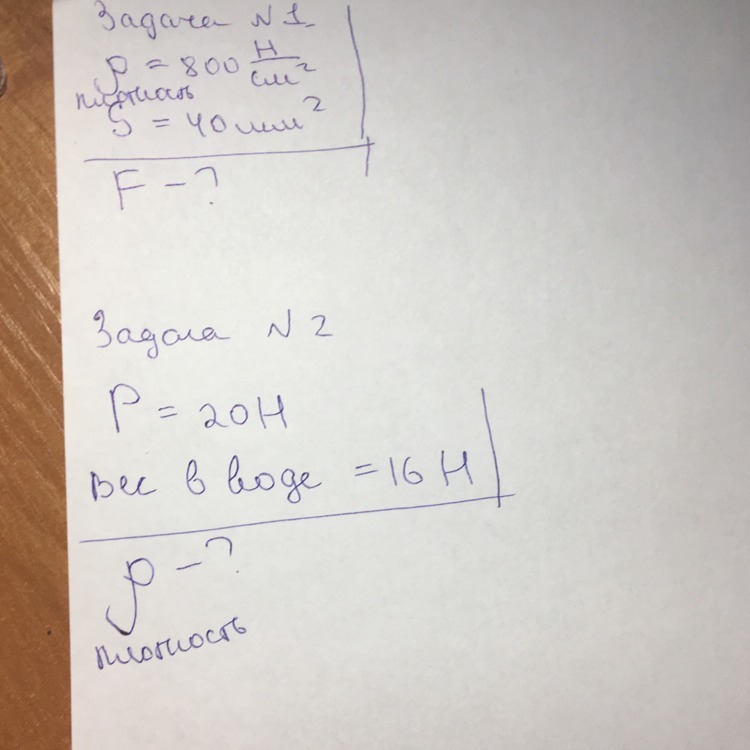 Задача N 1
ρ = 800 Н/см²
плотность
S = 40 мм²
F - ?
Задача N 2
P = 20Н
вес в воде = 16 Н
ρ - ?
плотность